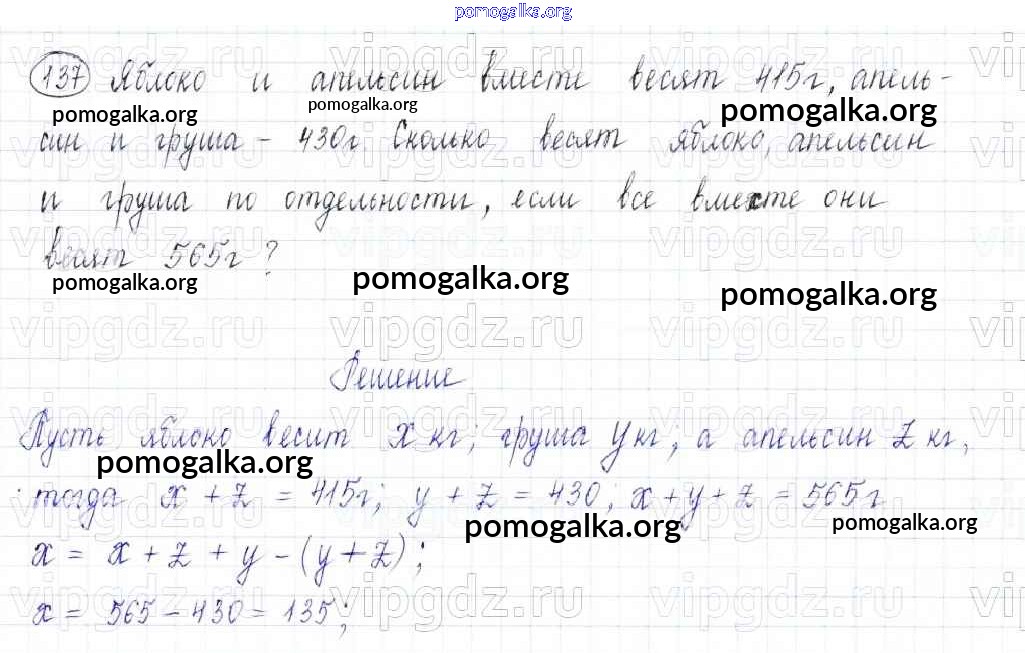 pomogalka.org
137 Яблоко и апельсин вместе весят 415г, апель-
pomogalka.org pomogalka.org pomogalka.org
син и груша - 430г. Сколько весят яблоко, апельсин
и груша по отдельности, если все вместе они
весят 565г?
pomogalka.org pomogalka.org pomogalka.org
vipgdz.ru vipgdz.ru vipgdz.ru
Решение
Пусть яблоко весит x кг; груша y кг; а апельсин z кг,
pomogalka.org
тогда x + z = 415г; y + z = 430; x + y + z = 565г
pomogalka.org pomogalka.org
x = x + z + y - (y + z);
x = 565 - 430 = 135;